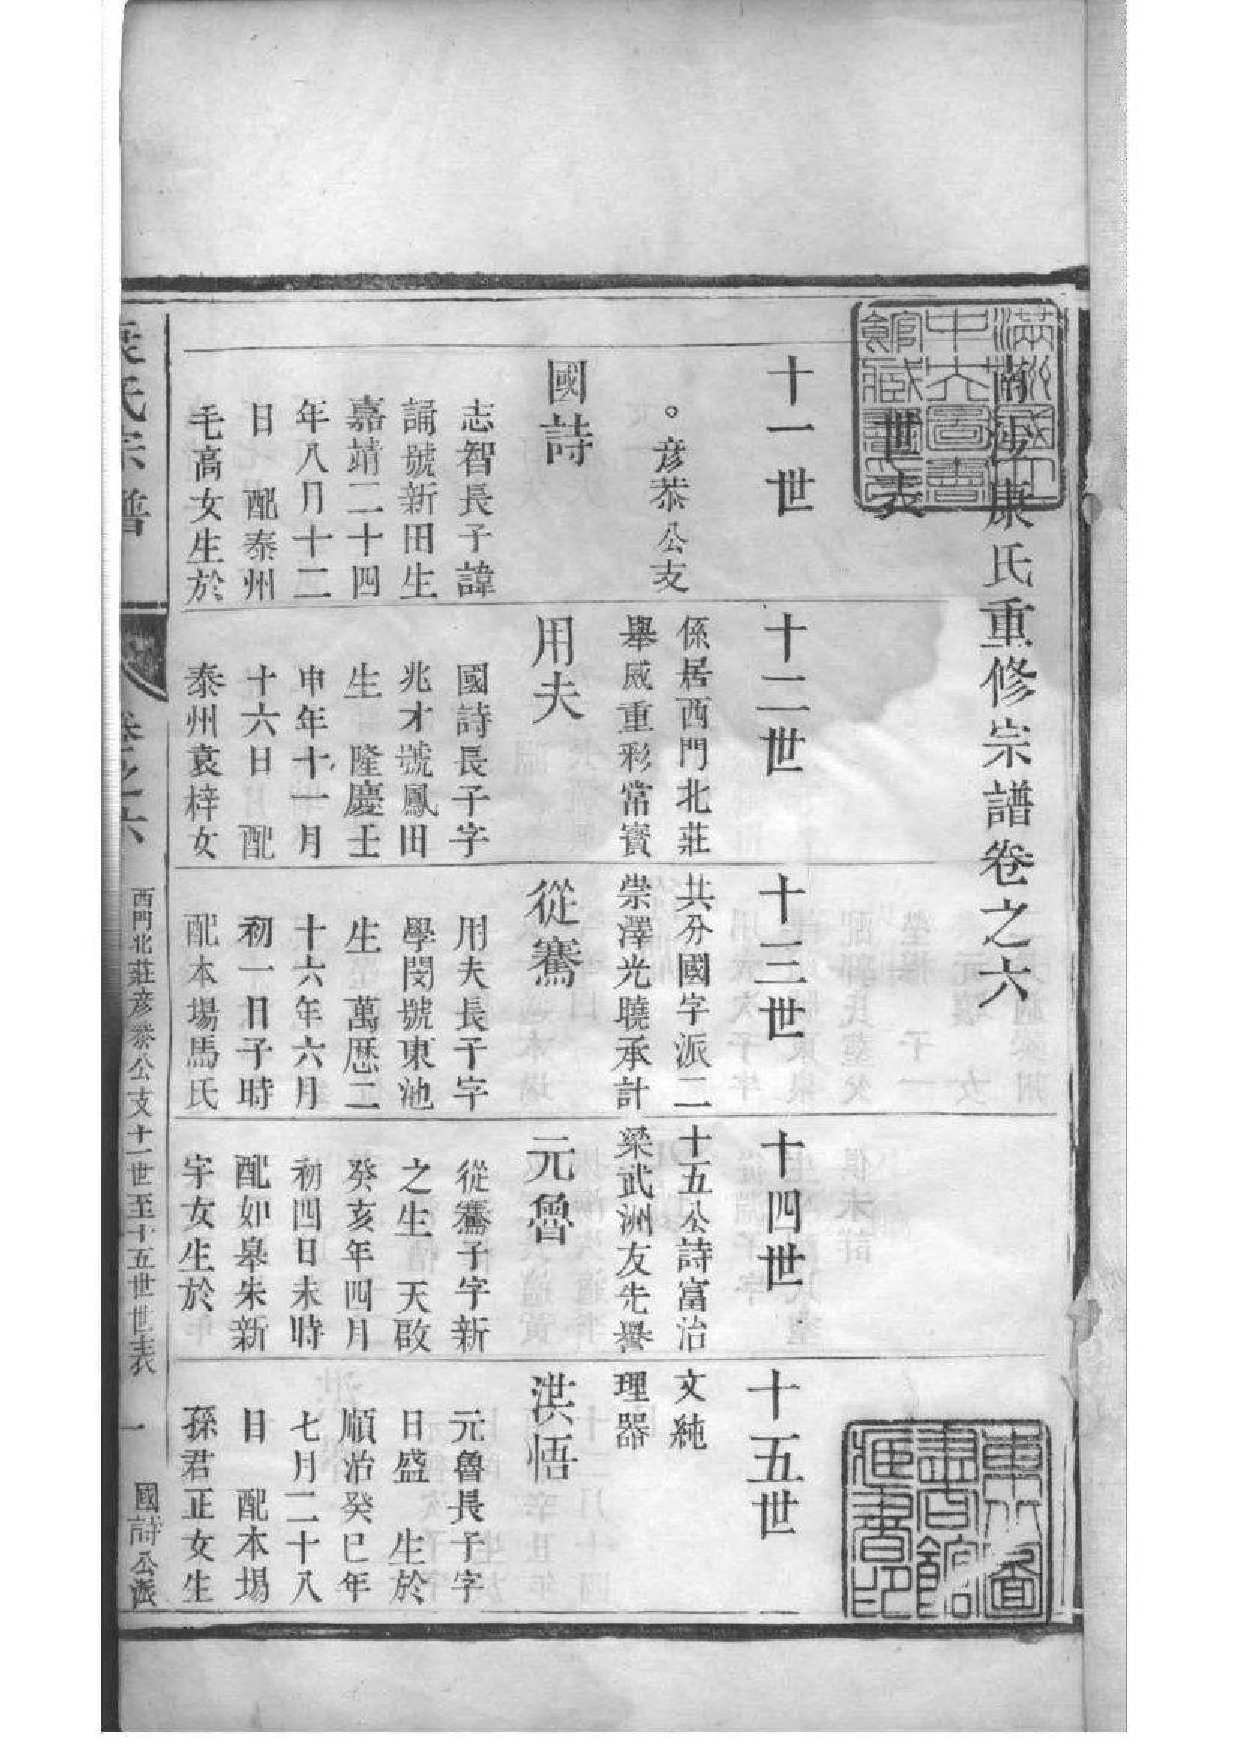 南海康氏重修宗譜卷之六
世表
十一世
十二世
十三世
十四世
十五世
。彥恭公支
係居西門北莊
共分國字派二
十五公詩富治
文純
舉威重彩常賓
崇澤光曉承計
梁武洲友先譽
理器
國詩
志智長子諱
誦號新田生
嘉靖二十四
年八月十二
日 配泰州
毛高女生於
用夫
國詩長子字
兆才號鳳田
生 隆慶壬
申年十一月
十六日 配
泰州袁梓女
從騫
用夫長子字
學閔號東池
生 萬歷二
十六年六月
初一日子時
配本場馬氏
元魯
從騫子字新
之生 天啟
癸亥年四月
初四日未時
配如皋朱新
宇女生於
洪悟
元魯長子字
日盛 生於
順治癸巳年
七月二十八
日 配本場
孫君正女生
氏宗譜
卷之六
西門北莊彥恭公支十一世至十五世世表
一
國詩公派
東北圖書館藏書印